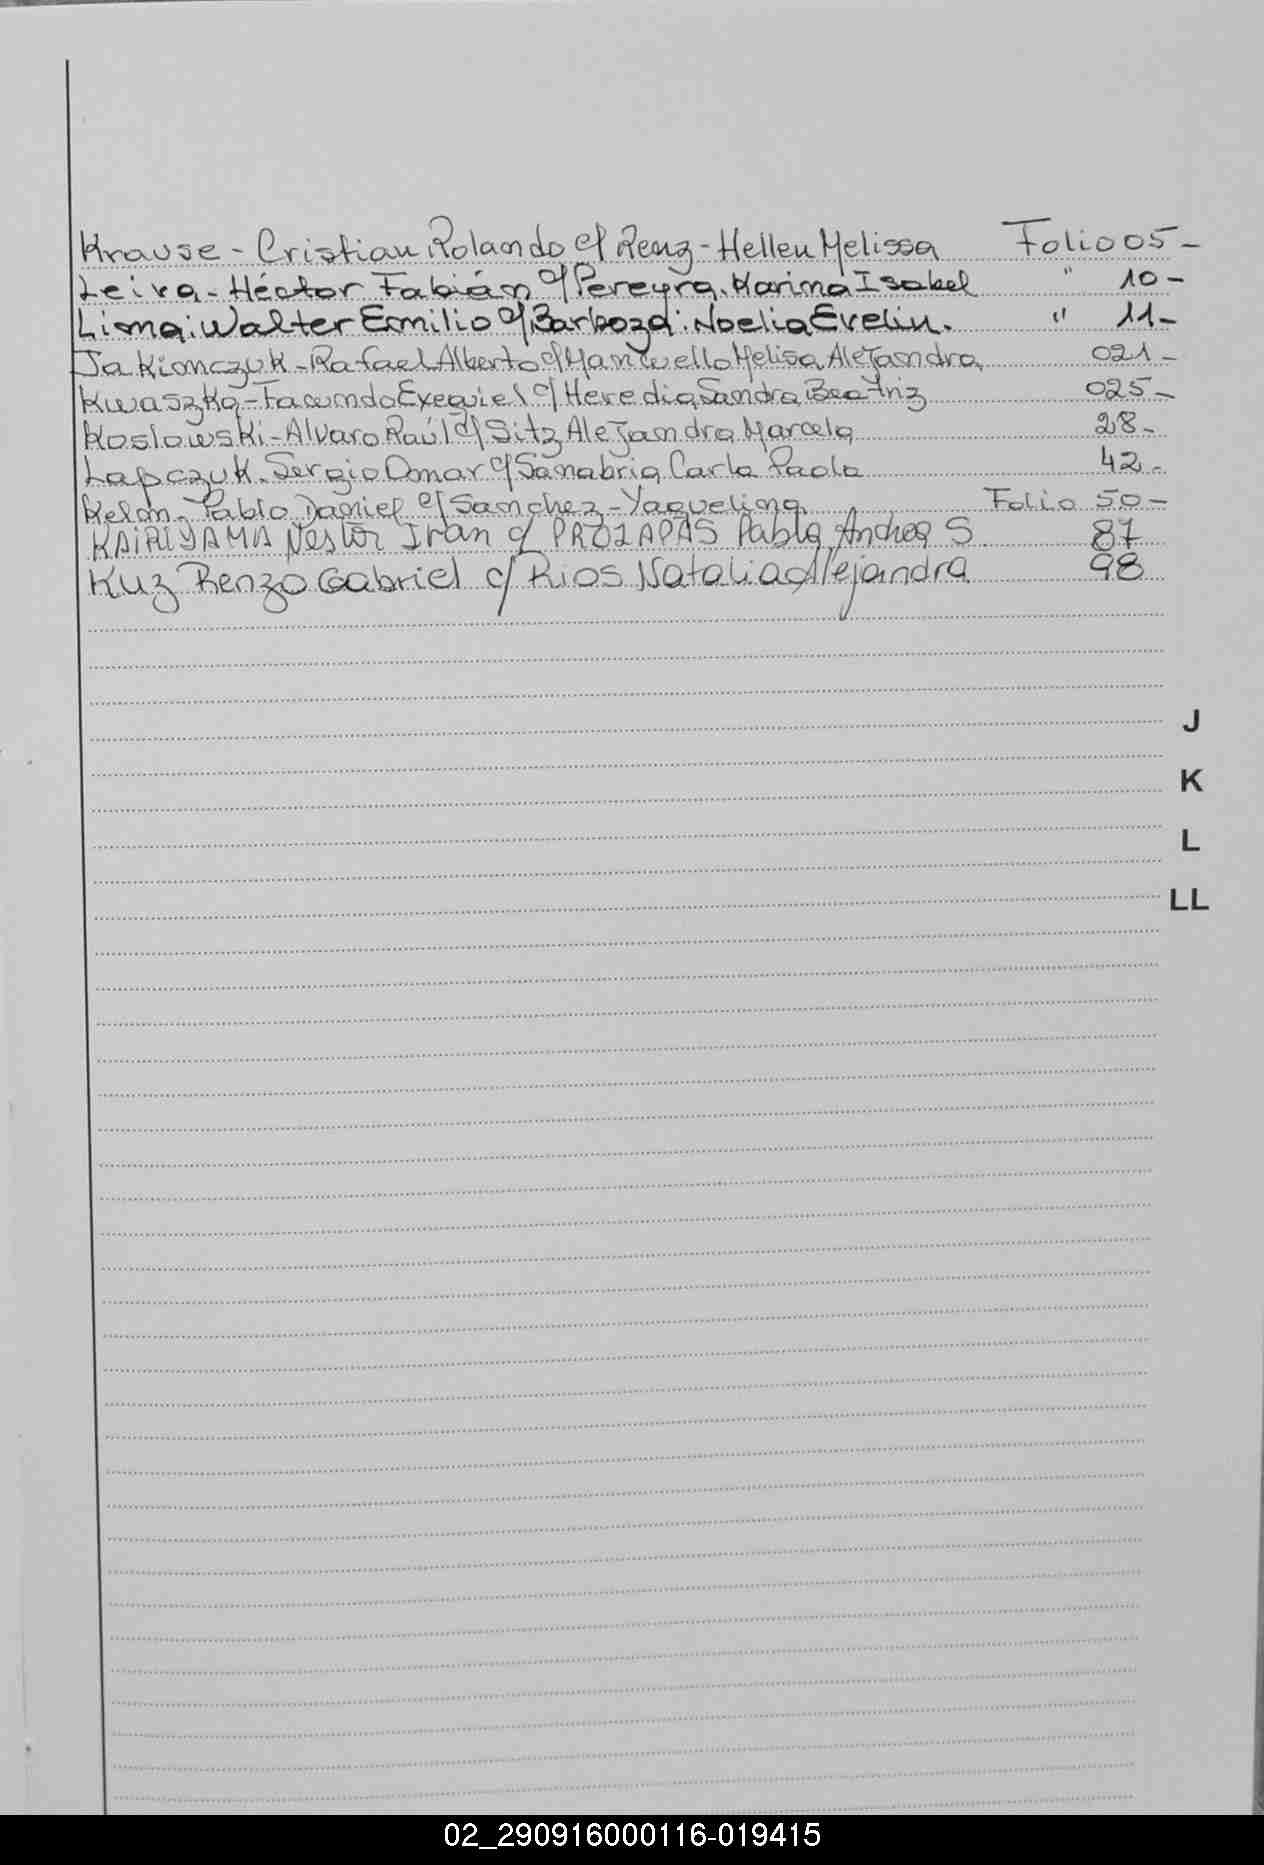 Krause - Cristian Rolando c/ Renz - Hellen Melissa Folio 05 -
Leiva - Héctor Fabián c/ Pereyra. Karina Isabel " 10 -
Lima: Walter Emilio c/ Barboza: Noelia Evelin. " 11 -
Jakionczuk - Rafael Alberto c/ Melisa Alejandra 021 -
Kwaszka - Facundo Exequiel c/ Heredia Sandra Beatriz 025 -
Koslowski - Alvaro Raúl c/ Sitz Alejandra Marcela 28 -
Lapczuk. Sergio Omar c/ Sanabria Carla Paola 42 -
Kelm - Pablo Daniel c/ Sanchez - Yaquelina Folio 50 -
KAIRIYAMA Nestor Ivan c/ Andrea S 87
Kuz Renzo Gabriel c/ Rios Natalia Alejandra 98
J
K
L
LL
02_290916000116-019415